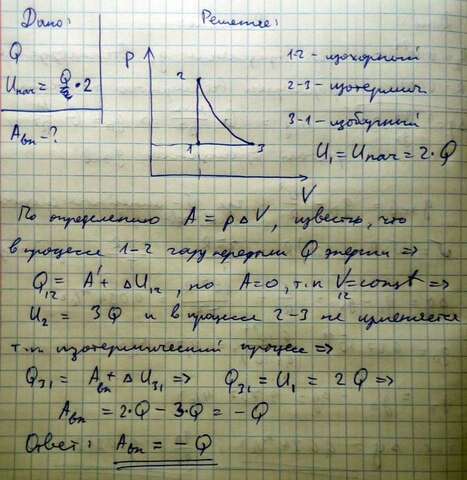 Дано:
Решение:
Q
Uнач = Q/2 · 2
Aвн - ?
P
2
1
3
V
1-2 - изохорный
2-3 - изотермич.
3-1 - изобарный
U₁ = Uнач = 2·Q
По определению A = pΔV, известно, что
в процессе 1-2 газу передали Q энергии =>
Q₁₂ = A' + ΔU₁₂, но A=0, т.к V₁₂=const =>
U₂ = 3Q и в процессе 2-3 не изменяется
т.к изотермический процесс =>
Q₃₁ = Aвн + ΔU₃₁ => Q₃₁ = U₁ = 2Q =>
Aвн = 2·Q - 3·Q = -Q
Ответ: Aвн = -Q